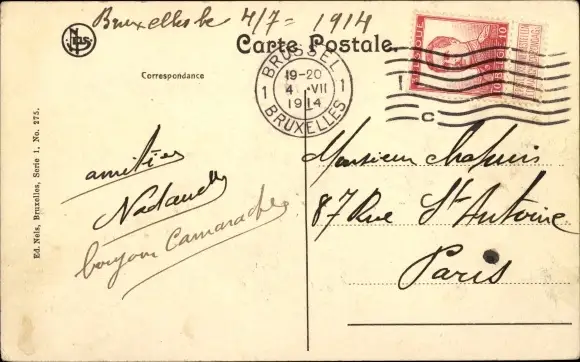 Bruxelles le 4/7 = 1914
Carte Postale.
Correspondance
BELGIQUE
BELGIE
10
BRUSSEL
19-20
1 4 VII 1
1914
BRUXELLES
C
amitiés
Nadaud
bonjour Camarade
Monsieur Chapuis
87 Rue St Antoine
Paris
Ed. Nels, Bruxelles, Serie 1, No. 275.